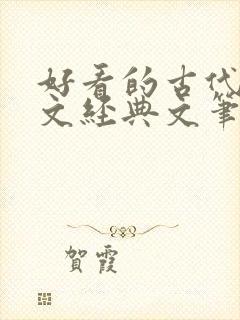 好看的古代
文经典文笔
賀霞